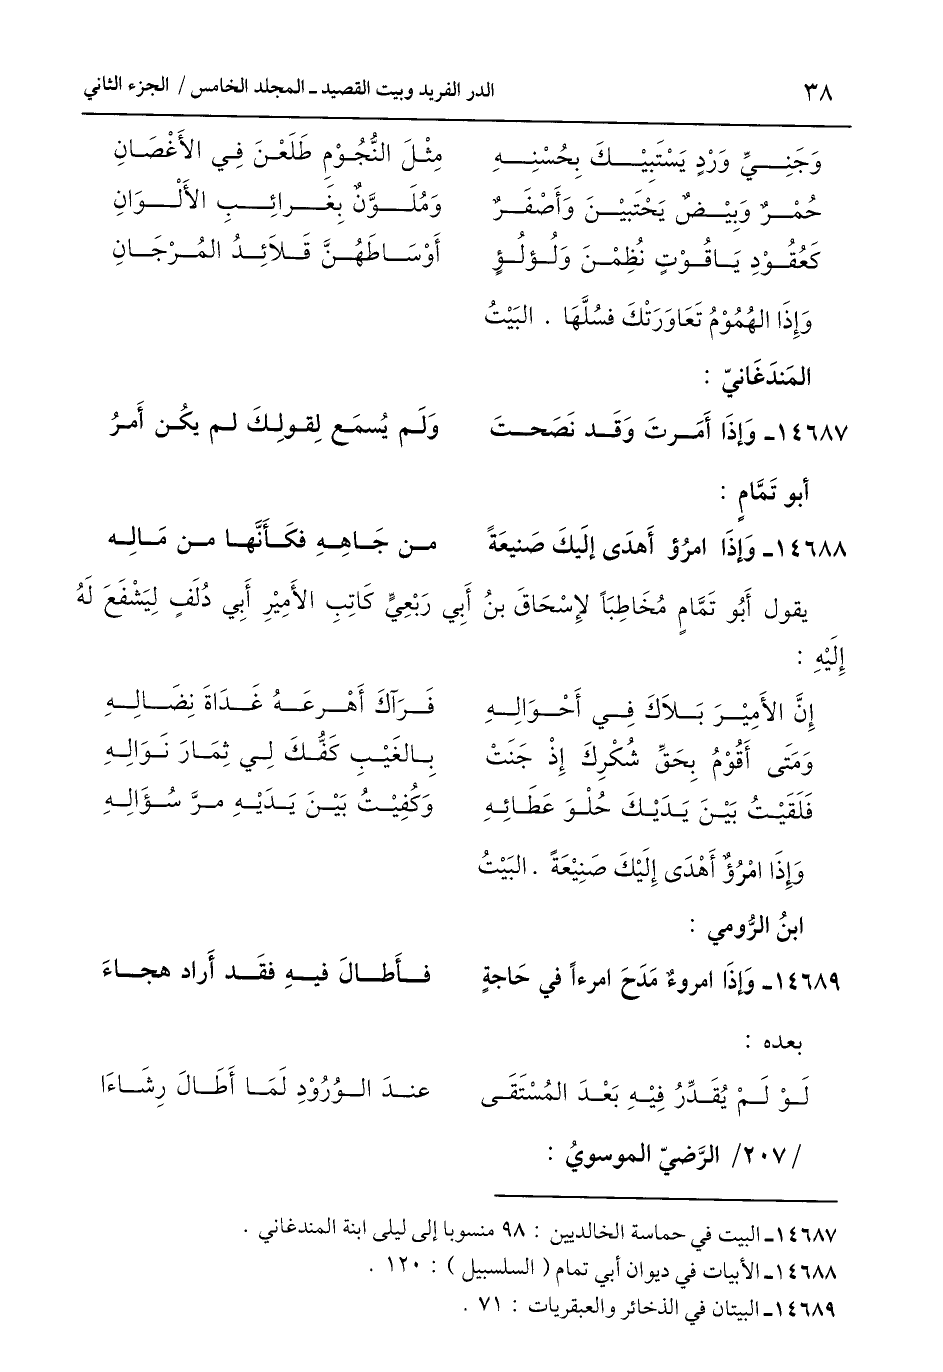 ٣٨ الدر الفريد وبيت القصيد ـ المجلد الخامس / الجزء الثاني
وَجَنِــيِّ وَرْدٍ يَسْتَبِيْــــكَ بِحُسْنِـــهِ مِثْلَ النُّجُوْمِ طَلَعْنَ فِي الأَغْصَانِ
حُمْــرٌ وَبِيْــضٌ يَجْتَبِيْــنَ وَأَصْفَــرٌ وَمُلَـــوَّنٌ بِغَـــرائِـــبِ الأَلْـــوَانِ
كَعُقُــوْدِ يَــاقُوْتٍ نُظِمْــنَ وَلُــؤلُــؤٍ أَوْسَــاطُهُــنَّ قَــلاَئِــدُ المَــرْجَــانِ
وَإِذَا الهُمُوْمُ تَعَاوَرَتْكَ فَسُلَّهَا . البَيْتُ
المَندَغَانيّ :
١٤٦٨٧ـ وَإِذَا أَمَــرتَ وَقَــد نَصَحــتَ وَلَم يُسمَع لِقولِكَ لم يكُن أَمرُ
أبو تَمَّامٍ :
١٤٦٨٨ـ وَإِذَا امرُؤ أَهدَى إِلَيكَ صَنِيعَةً مــن جَــاهِــهِ فكَأَنَّهــا مــن مَــالِــه
يقول أَبُو تَمَّامٍ مُخَاطِبَاً لإِسْحَاقَ بنُ أَبِي رَبْعِيٍّ كَاتِبِ الأَمِيْرِ أَبِي دُلَفٍ لِيَشْفَعَ لَهُ
إِلَيْهِ :
إِنَّ الأَمِيْــرَ بَــلاَكَ فِــي أَحْــوَالِــهِ فَــرَآكَ أَهْــرعَــهُ غَــدَاةَ نِضَــالِــهِ
وَمَتَى أَقُوْمُ بِحَقِّ شُكْرِكَ إِذْ جَنَتْ بِــالغَيْــبِ كَفُّــكَ لِــي ثِمَــارَ نَــوَالِــهِ
فَلَقَيْــتُ بَيْــنَ يَــدَيْــكَ حُلْــوَ عَطَــائِــهِ وَكُفِيْــتُ بَيْــنَ يَــدَيْــهِ مــرَّ سُــؤَالِــهِ
وَإِذَا امْرُؤٌ أَهْدَى إِلَيْكَ صَنِيْعَةً . البَيْتُ
ابنُ الرُّومي :
١٤٦٨٩ـ وَإِذَا امروءٌ مَدَحَ امرءاً في حَاجةٍ فــأَطــالَ فيــهِ فقَــد أَراد هجــاءَ
بعده :
لَــوْ لَــمْ يُقَــدِّرُ فِيْــهِ بَعْــدَ المُسْتَقَــى عنــدَ الــوُرُوْدِ لَمَــا أَطَــالَ رِشَــاءَا
/ ٢٠٧/ الرَّضيّ الموسويُ :
١٤٦٨٧ـ البيت في حماسة الخالديين : ٩٨ منسوبا إلى ليلى ابنة المندغاني .
١٤٦٨٨ـ الأبيات في ديوان أبي تمام ( السلسبيل ) : ١٢٠ .
١٤٦٨٩ـ البيتان في الذخائر والعبقريات : ٧١ .